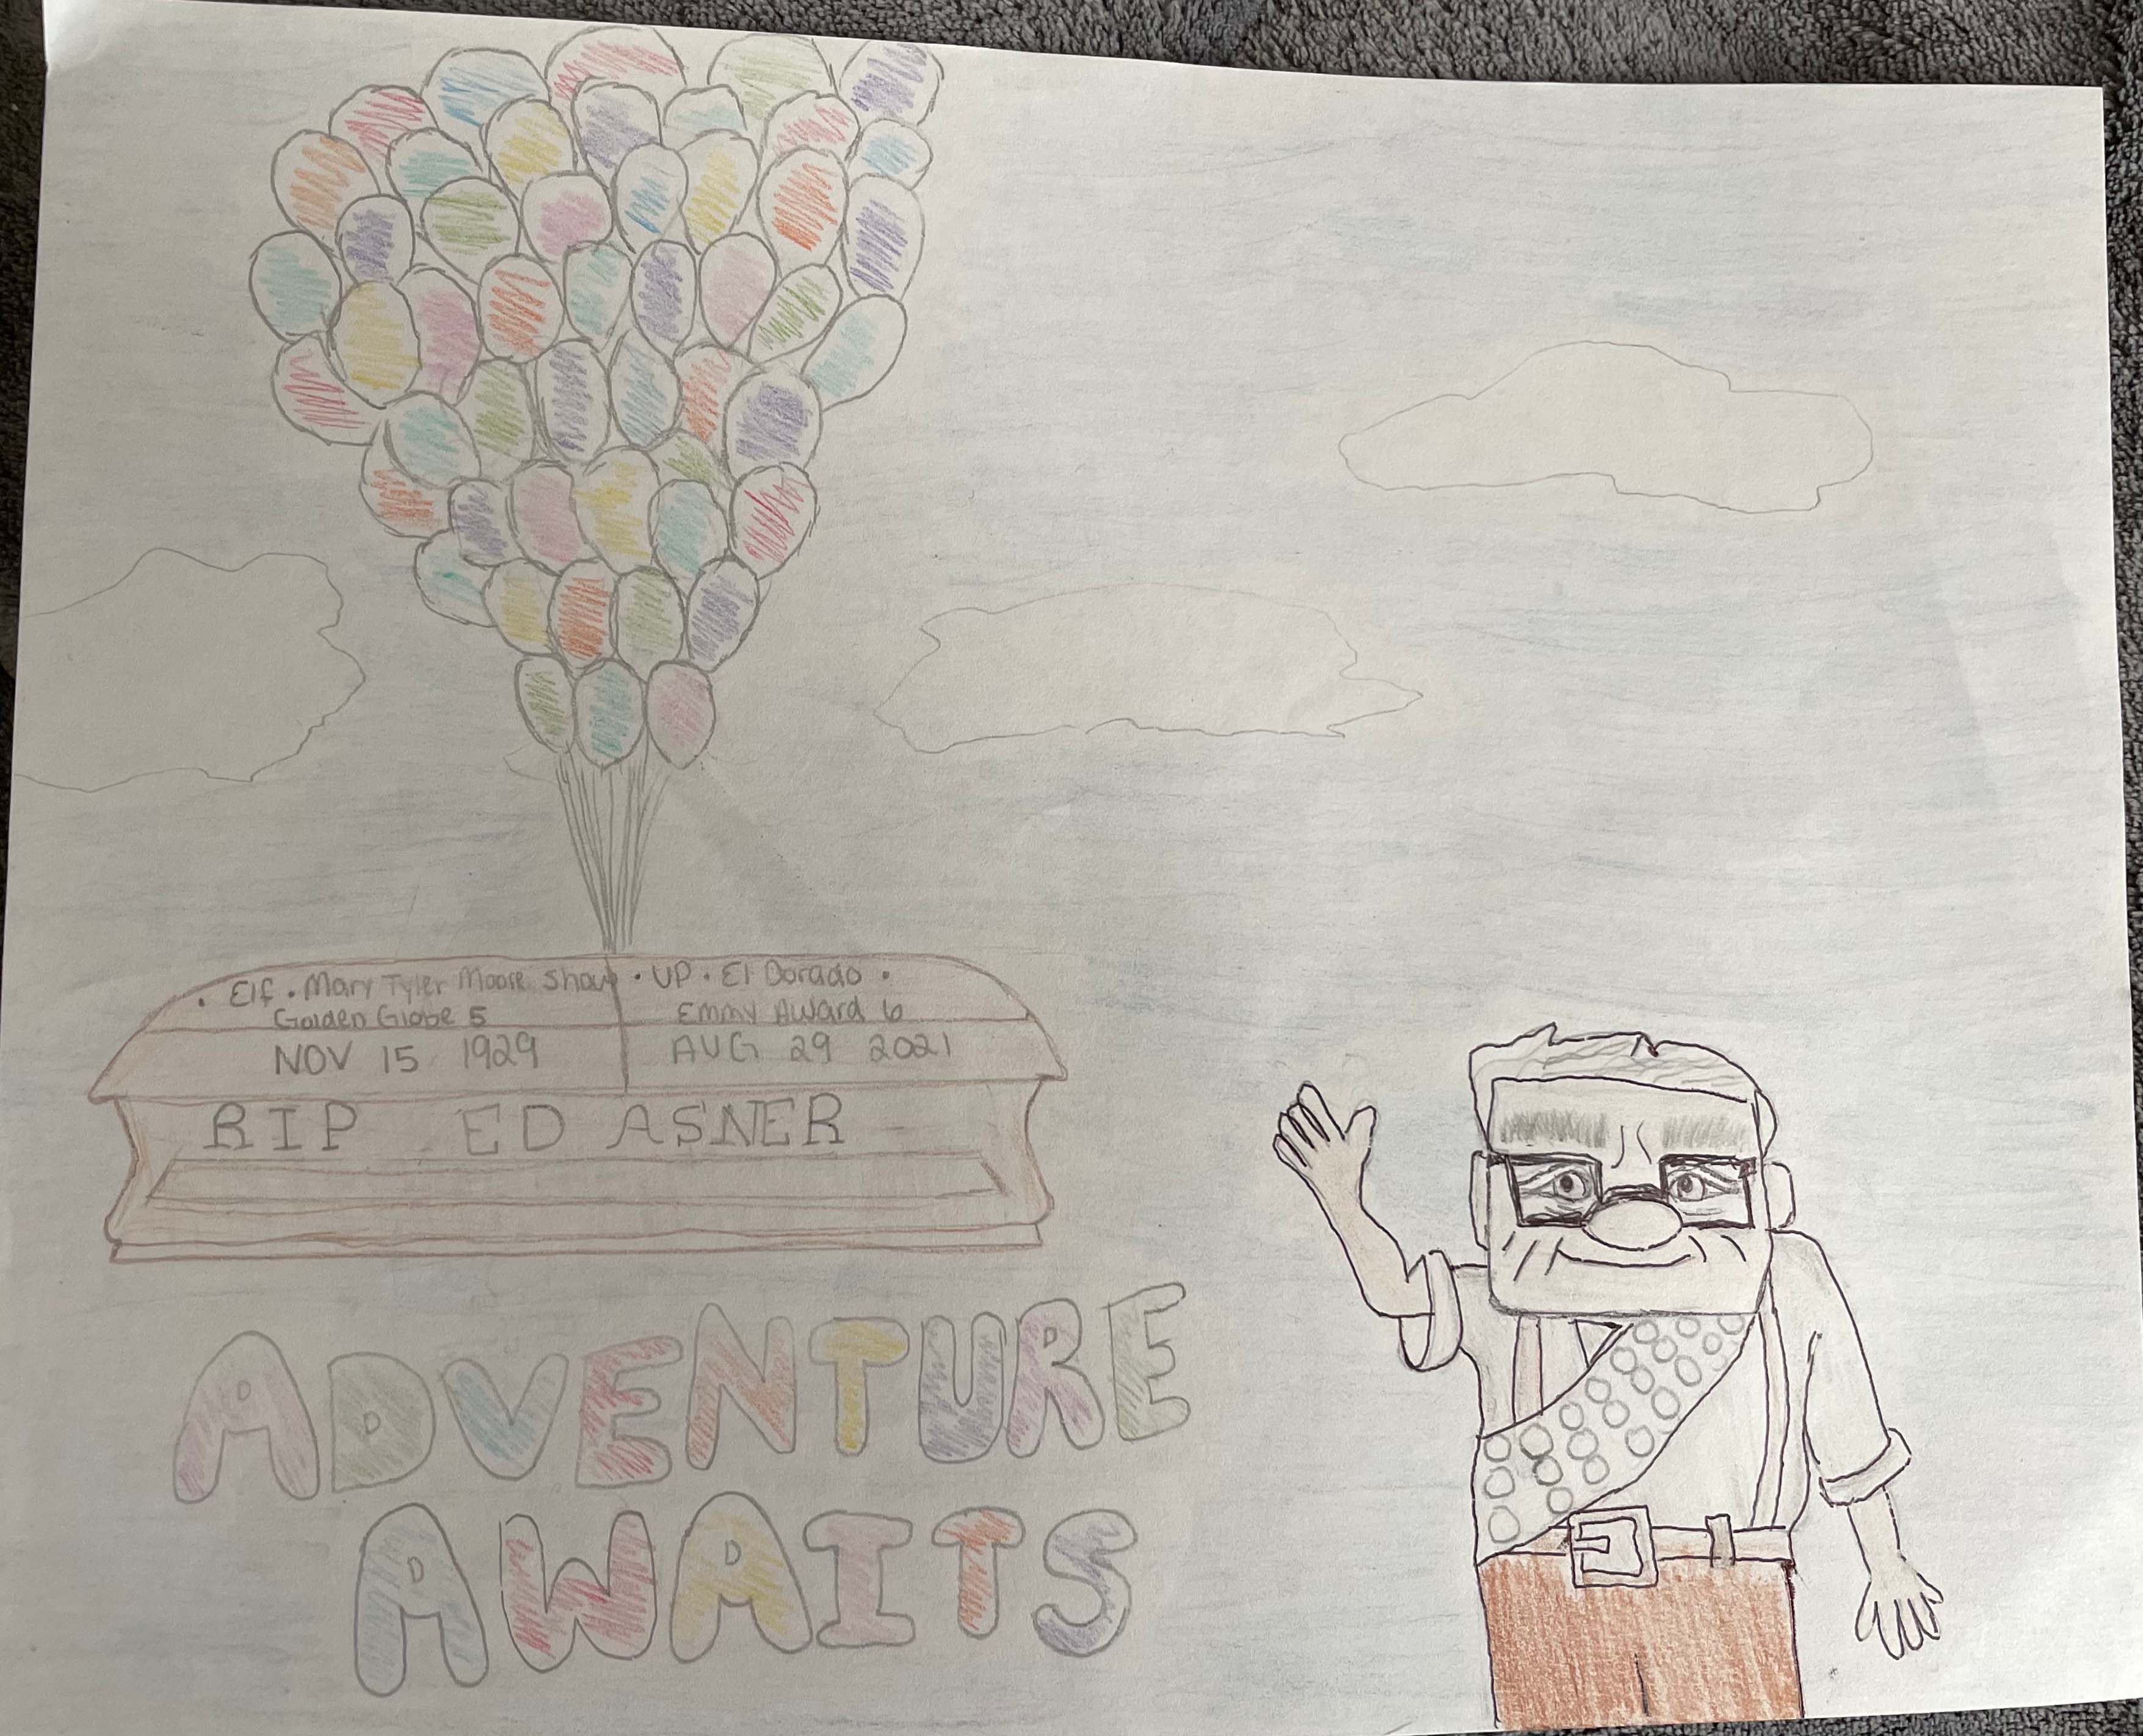 • Elf • Mary Tyler Moore Show • UP • El Dorado •
Golden Globe 5 Emmy Award 6
NOV 15 1929 AUG 29 2021
RIP ED ASNER
ADVENTURE
AWAITS